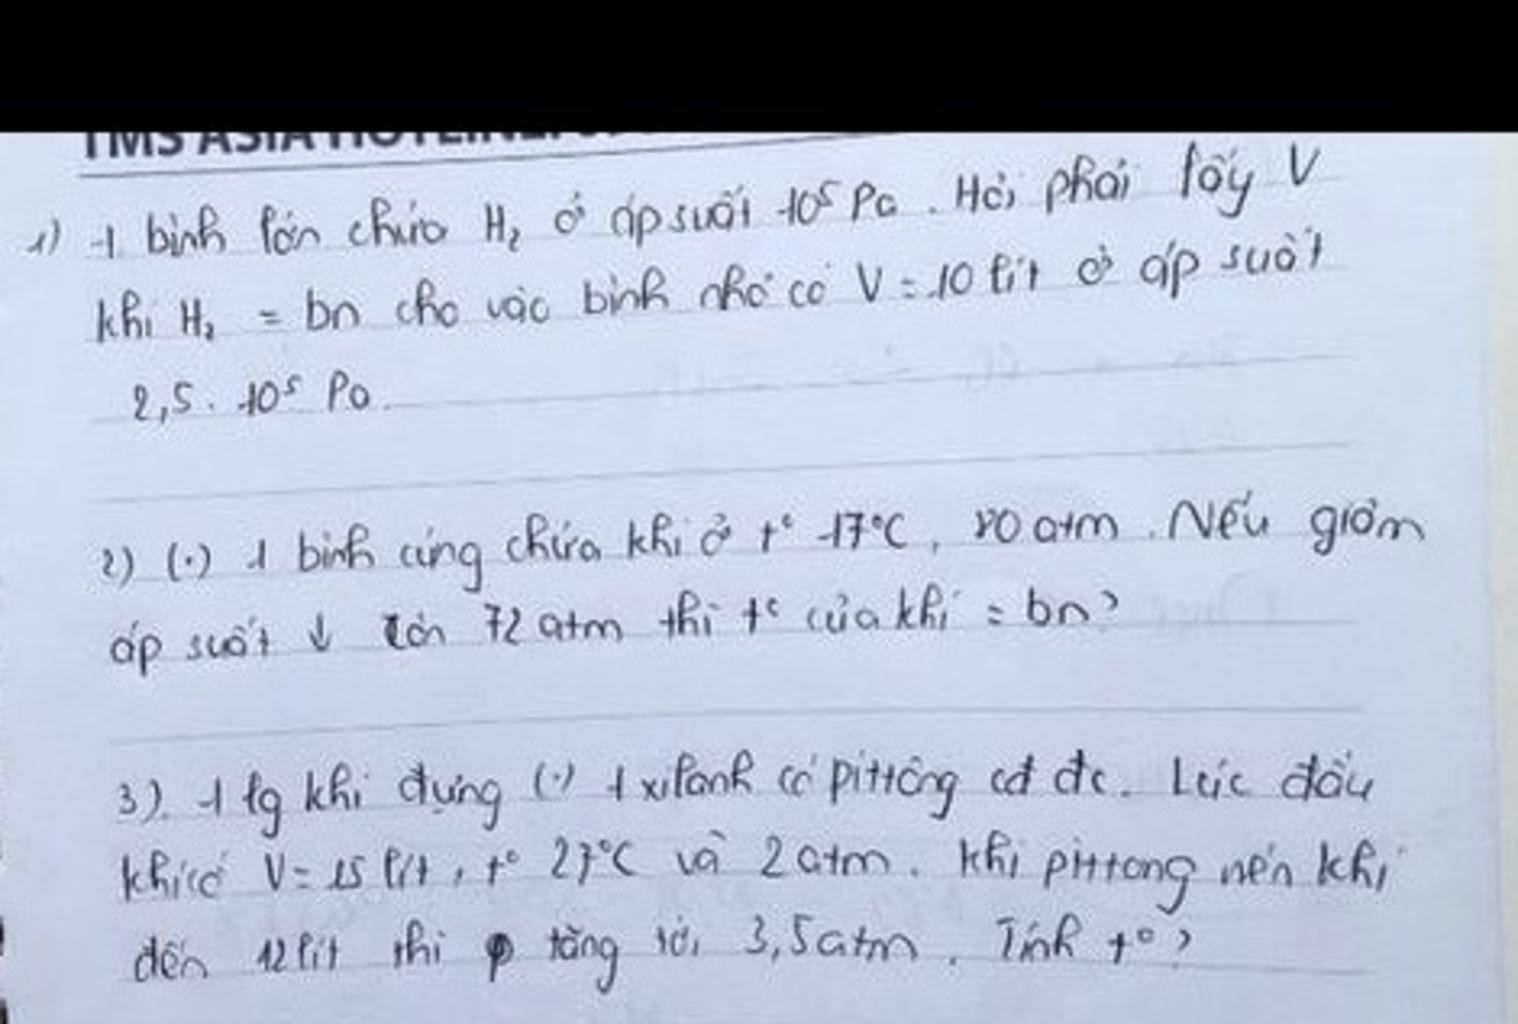 TMS ASIA HOTLINE:
1) 1 bình lớn chứa H₂ ở áp suất 10⁵ Pa. Hỏi phải lấy V
khí H₂ = bn cho vào bình nhỏ có V = 10 lít ở áp suất
2,5. 10⁵ Pa.
2) (.) 1 bình cứng chứa khí ở t° 17°C, 80 atm. Nếu giảm
áp suất ↓ còn 72 atm thì t° của khí = bn?
3). 1 lg khí đựng (.) 1 xilanh có pittông cđ đc. Lúc đầu
khí có V = 15 lít, t° 27°C và 2 atm. Khi pittong nén khí
đến 12 lít thì p tăng tới 3,5 atm. Tính t°?